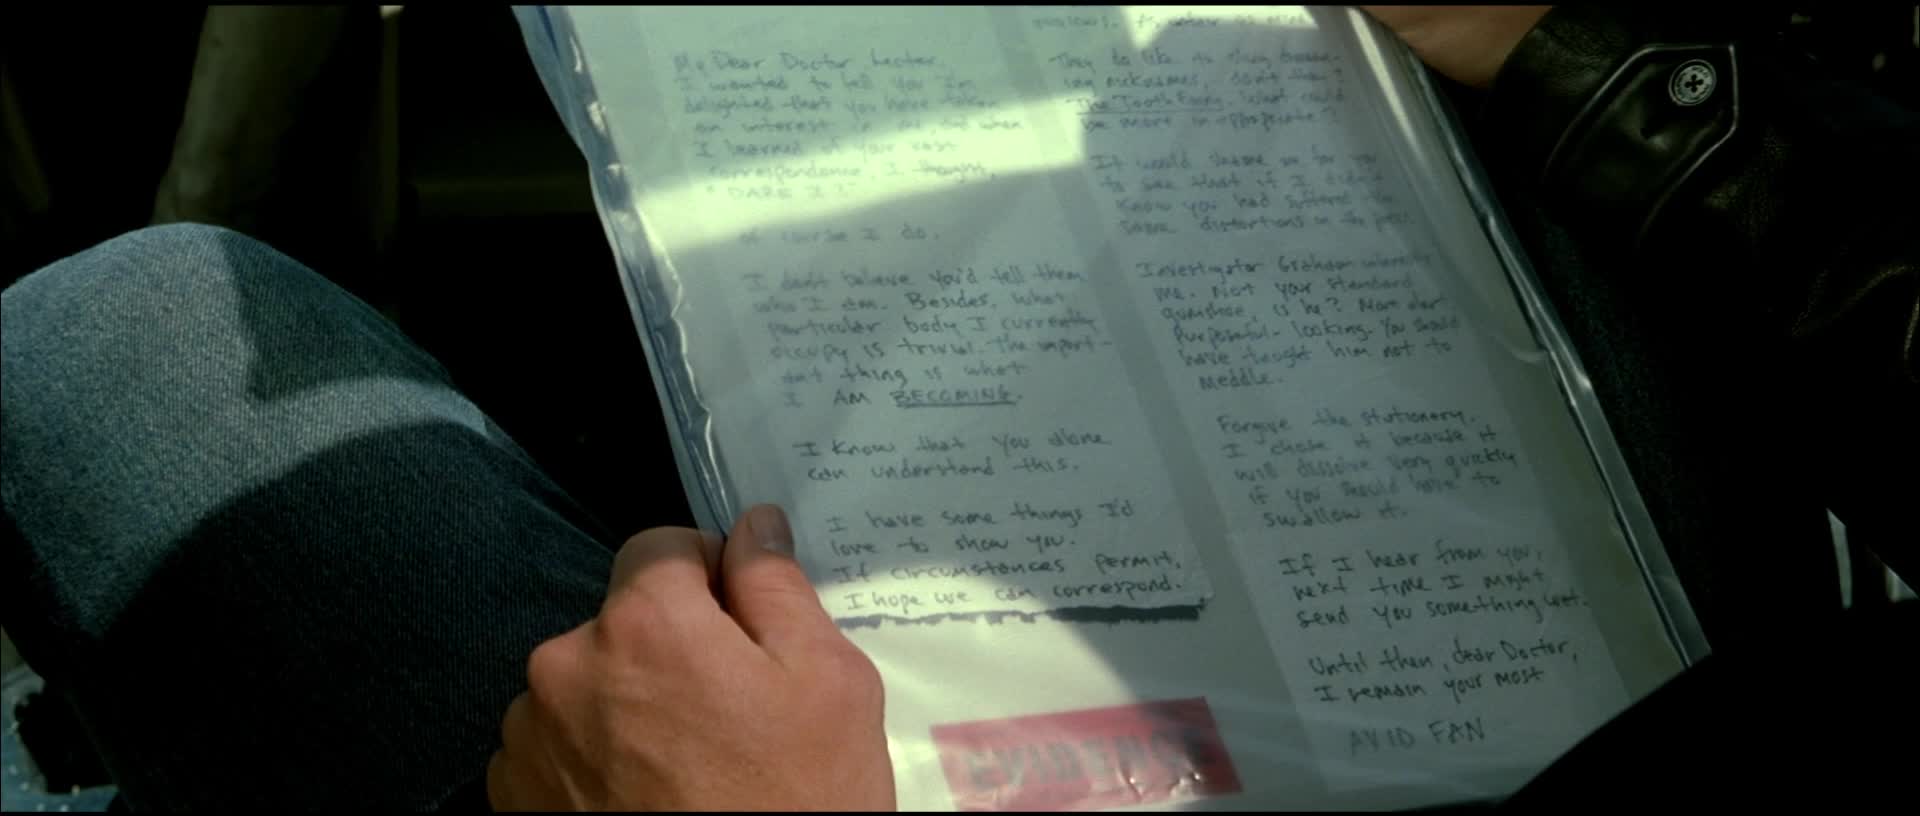 My Dear Doctor Lecter,
I wanted to tell you I'm
delighted that you have taken
an interest in me, and when
I learned of your vast
correspondence, I thought,
"DARE I?"
Of course I do.
I don't believe you'd tell them
who I am. Besides, what
particular body I currently
occupy is trivial. The import-
ant thing is what
I AM BECOMING.
I know that you alone
can understand this.
I have some things I'd
love to show you.
If circumstances permit,
I hope we can correspond.
They do like
ing nicknames, don't they?
The Tooth Fairy. What could
be more inappropriate?
It would shame me for you
to see that if I didn't
know you had suffered the
same distortions in the press.
Investigator Graham interests
me. Not your standard
gumshoe, is he? More
purposeful-looking. You should
have taught him not to
meddle.
Forgive the stationery.
I chose it because it
will dissolve very quickly
if you should have to
swallow it.
If I hear from you,
next time I might
send you something wet.
Until then, dear Doctor,
I remain your most
AVID FAN
EVIDENCE